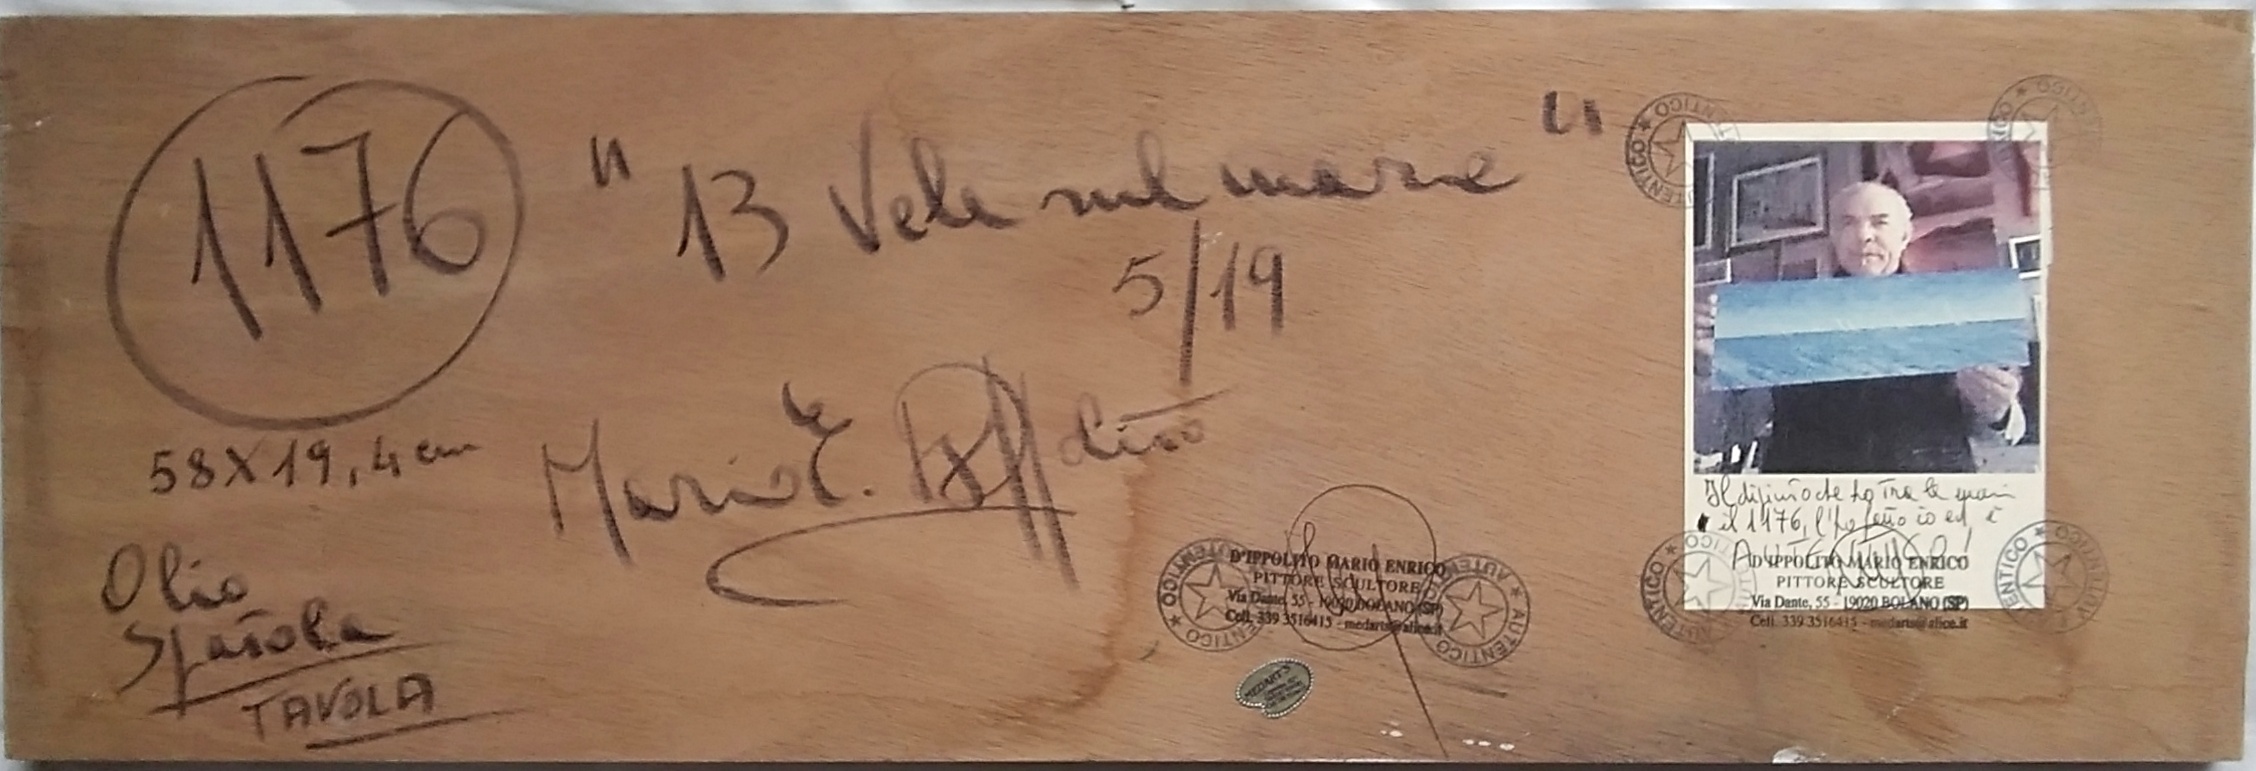 1176
" 13 Vele sul mare "
5/19
58X19,4 cm
Mario E.
Olio
Spatola
TAVOLA
D'IPPOLITO MARIO ENRICO
PITTORE SCULTORE
Via Dante, 55 - 19020 BOLANO (SP)
Cell. 339 3516415 - medarts@alice.it
AUTENTICO ★ AUTENTICO ★
AUTENTICO ★ AUTENTICO ★
MEDART'S
AUTENTICO ★ AUTENTICO ★
AUTENTICO ★ AUTENTICO ★
Il dipinto che ho tra le mani
il 1176, l'ho fatto io ed è
D'IPPOLITO MARIO ENRICO
PITTORE SCULTORE
Via Dante, 55 - 19020 BOLANO (SP)
Cell. 339 3516415 - medarts@alice.it
AUTENTICO ★ AUTENTICO ★
AUTENTICO ★ AUTENTICO ★